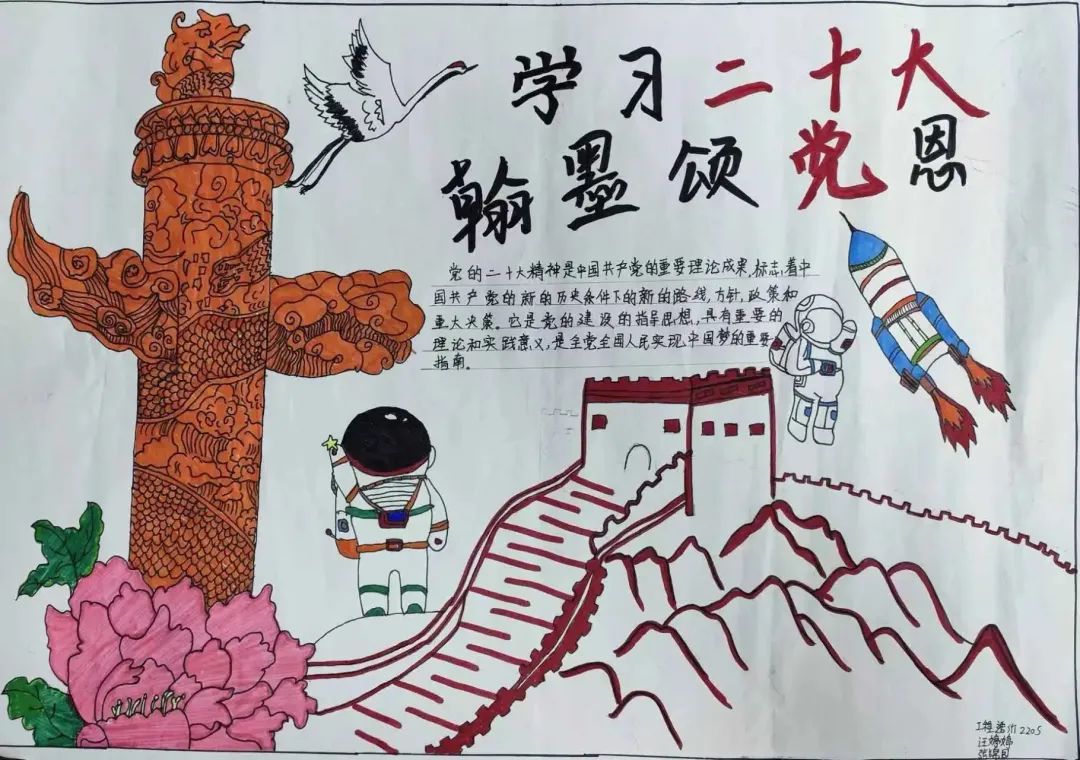 学习二十大
翰墨颂党恩
党的二十大精神是中国共产党的重要理论成果,标志着中
国共产党的新的历史条件下的新的路线,方针,政策和
重大决策。它是党的建设的指导思想,具有重要的
理论和实践意义,是全党全国人民实现中国梦的重要
指南。
工程造价2205
汪婷婷